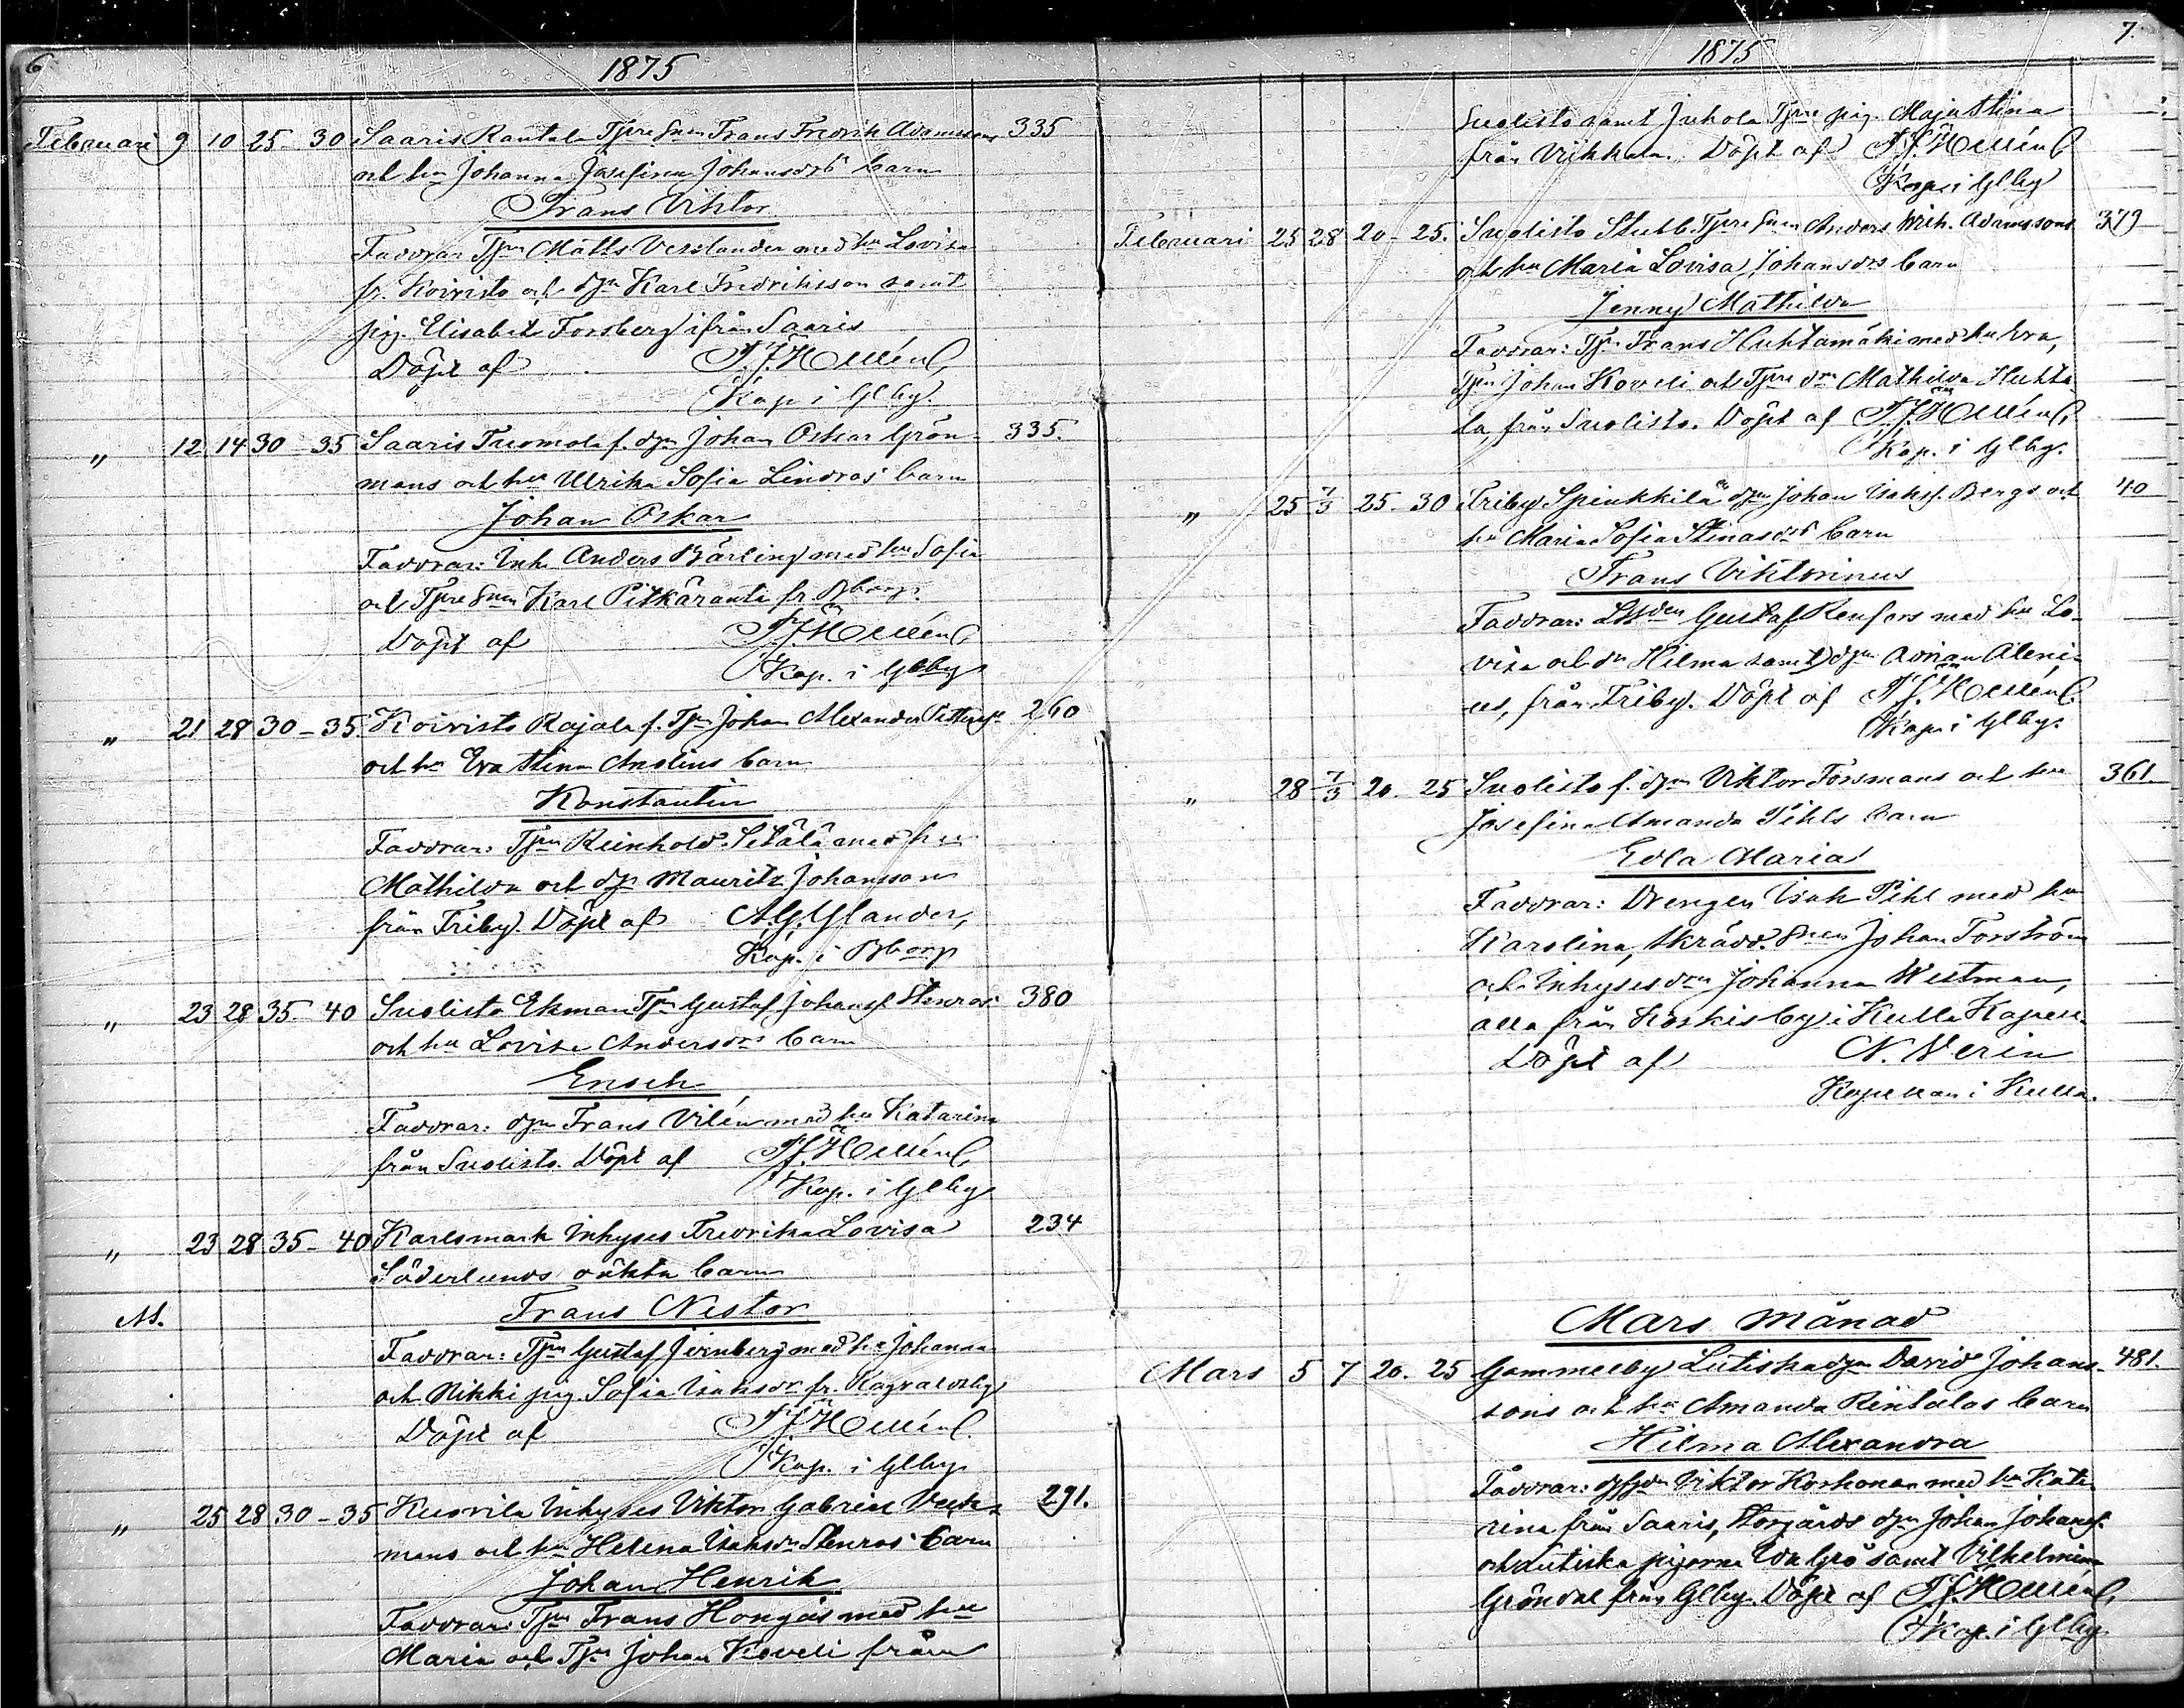 6
1875
Februari 9 10 25 - 30 Saaris Rantala Tjenesnen Frans Fredrik Adamssons 335
och hu Johanna Josefina Johansdrs barn
Frans Viktor
Faddrar Tjn Matts Vesslander med hu Lovisa
fr. Koivisto och djn Karl Fredriksson samt
pig. Elisabet Forsberg ifrån Saaris
Döpt af
Kap. i Glby.
" 12 14 30 - 35 Saaris Tuomola f. djn Johan Oskar Grön- 335.
mans och hu Ulrika Sofia Lindros' barn
Johan Oskar
Faddrar: Inh. Anders Bärling med hu Sofia
och Karl Pitkäranta fr. Bborg.
Döpt af
Kap. i Glby
" 21 28 30 - 35 Koivisto Rajala f. Tjn Johan Alexander 260
och hu Eva Stina Anolins barn
Konstantin
Faddrar: Tjn Reinhold Setälä med hu
Mathilda och djn Mauritz Johansson
från Friby. Döpt af A. G. Glander,
Kap. i Bborg
" 23 28 35 - 40 Suolisto Ekman Tjn Gustaf Johanss. Stenros' 380
och hu Lovisa Andersdrs barn
Enoch
Faddrar: djn Frans Vilén med hu Katarina
från Suolisto. Döpt af
Kap. i Glby
" 23 28 35 - 40 Karlsmark Inhyses Fredrika Lovisa 234
Söderlunds oäkta barn
Frans Nestor
Faddrar: Tjn Gustaf med hu Johanna
och Nikki pig. Sofia Isaksdr fr. Ragvaldsby
Döpt af
Kap. i Glby
" 25 28 30 - 35 Kuorila Inhyses Viktor Gabriel Veck- 291.
mans och hu Helena Isaksdr Stenros' barn
Johan Henrik
Faddrar: Tjn Frans Hongas med hu
Maria och Tjn Johan Koveli från
7.
1875
Suolisto samt Juhola pig. Maja Stina
från Viikkala. Döpt af
Kap. i Glby
Februari 25 28 20 - 25. Suolisto Stubb Anders Wilh. Adamssons 379
och hu Maria Lovisa Johansdrs barn
Jenny Mathilda
Faddrar: Tjn Frans Huhtamäki med hu Eva,
Tjn Johan Koveli och Mathilda Huhta-
la från Suolisto. Döpt af
Kap. i Glby.
" 25 7/3 25 - 30 Friby Spinkkilä djn Johan Isakss. Bergs och 40
hu Maria Sofia Stinasdrs barn
Frans Viktorinus
Faddrar: Gustaf Renfors med hu Lo-
visa och dr Hilma samt djn Adrian Aleni-
us, från Friby. Döpt af
Kap. i Glby.
" 28 7/3 20. 25 Suolisto f. djn Viktor Forsmans och hu 361.
Josefina Amanda Pihls barn
Edla Maria
Faddrar: Drengen Isak Pihl med hu
Karolina, skrädd. snen Johan Forström
och Inhyses drn Johanna Westman,
alla från Koskisby i Kulla Kapell.
Döpt af N. Nerin
Kapellan i Kulla.
Mars månad
Mars 5 7 20. 25 Gammelby Lutiska djn David Johans- 481.
sons och hu Amanda Rintalas barn
Hilma Alexandra
Faddrar: Viktor Korhonen med hu Kata-
rina från Saaris, Storgårds djn Johan Johanss.
och Lutiska pigorna Eva Grö samt Vilhelmina
Gröndal från Glby. Döpt af
Kap. i Glby.